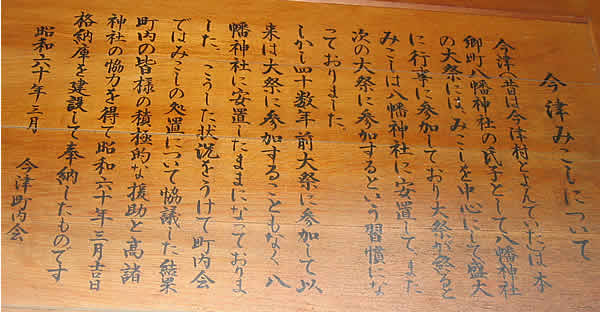 今津みこしについて
今津(昔は今津村とよんでいた)は本
郷町八幡神社の氏子として八幡神社
の大祭には、みこしを中心にして盛大
に行事に参加しており大祭が終ると
みこしは八幡神社に安置して、また
次の大祭に参加するという習慣にな
っておりました。
しかし四十数年前大祭に参加して以
来は大祭に参加することもなく、八
幡神社に安置したままになっておりま
した。こうした状況をうけて町内会
ではみこしの処置について協議した結果
町内の皆様の積極的な援助と高諸
神社の協力を得て昭和六十年三月吉日
格納庫を建設して奉納したものです
昭和六十年三月
今津町内会